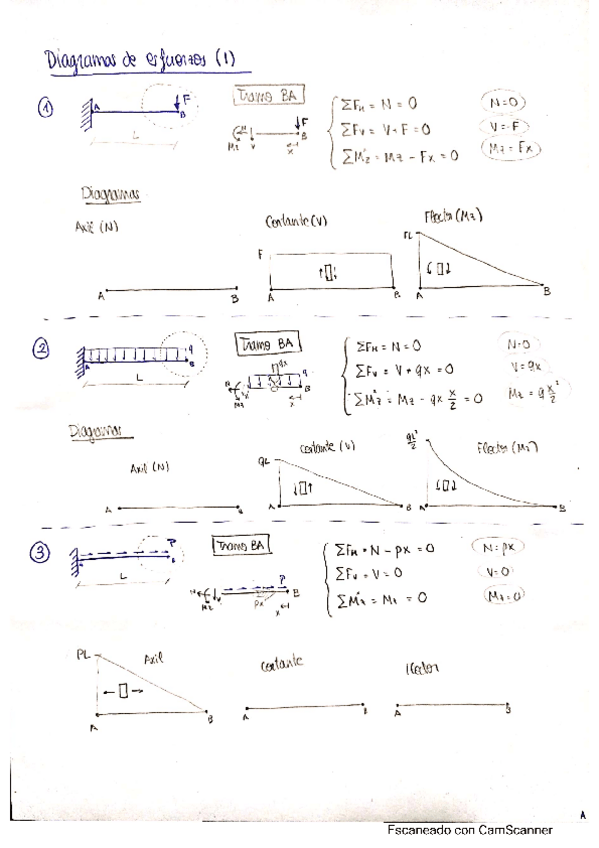 Diagramas de esfuerzos (1)
1
A
F
B
L
Tramo BA
F
B
x
Mz
V
ΣFH = N = 0
ΣFV = V + F = 0
ΣMz = Mz - Fx = 0
N=0
V = -F
Mz = Fx
Diagramas
Axil (N)
Cortante (V)
Flector (Mz)
A
B
F
A
B
FL
A
B
2
A
q
B
L
Tramo BA
qx
q
B
x
Mz
ΣFH = N = 0
ΣFV = V + qx = 0
ΣMz = Mz - qx x/2 = 0
N=0
V = qx
Mz = q x²/2
Diagramas
Axil (N)
Cortante (V)
Flector (Mz)
A
qL
A
B
qL²/2
A
B
3
P
L
Tramo BA
P
B
px
x
Mz
V
ΣFH = N - px = 0
ΣFV = V = 0
ΣMz = Mz = 0
N = px
V = 0
Mz = 0
PL
Axil
Cortante
Flector
A
B
A
B
A
B
A
Escaneado con CamScanner